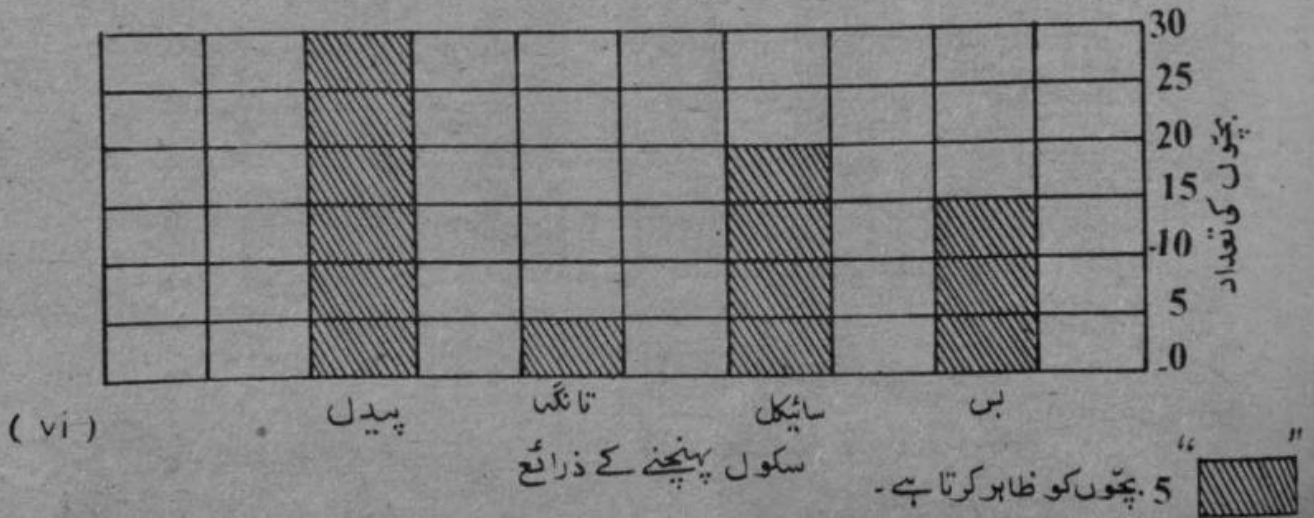 30
25
20
15
10
5
0
بچّوں کی تعداد
بس
سائیکل
تانگہ
پیدل
( vi )
سکول پہنچنے کے ذرائع
" " 5 بچّوں کو ظاہر کرتا ہے۔